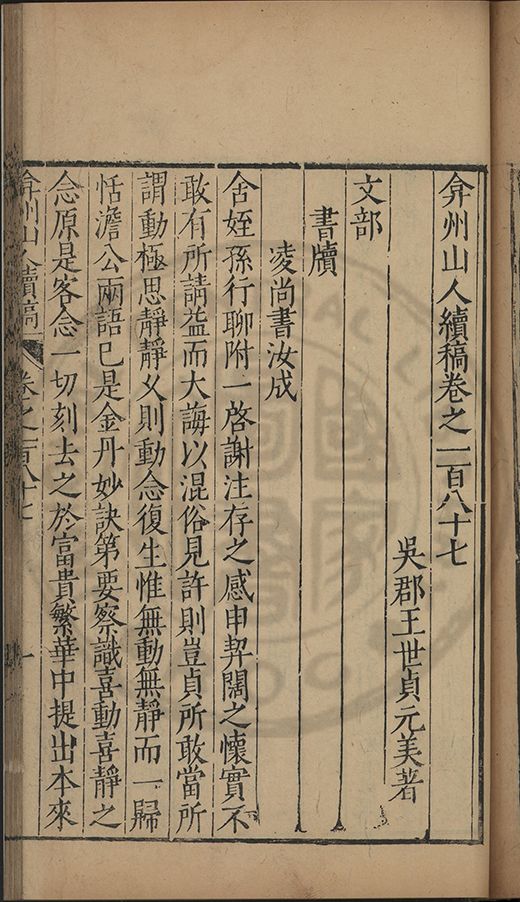 弇州山人續稿卷之一百八十七
吳郡王世貞元美著
文部
書牘
凌尚書汝成
舍姪孫行聊附一啓謝注存之感申契闊之懷實不
敢有所請益而大誨以混俗見許則豈貞所敢當所
謂動極思靜靜乆則動念復生惟無動無靜而一歸
恬澹公兩語已是金丹妙訣第要察識喜動喜靜之
念原是客念一切刻去之於富貴繁華中提出本來
弇州山人續稿
卷之一百八十七
一